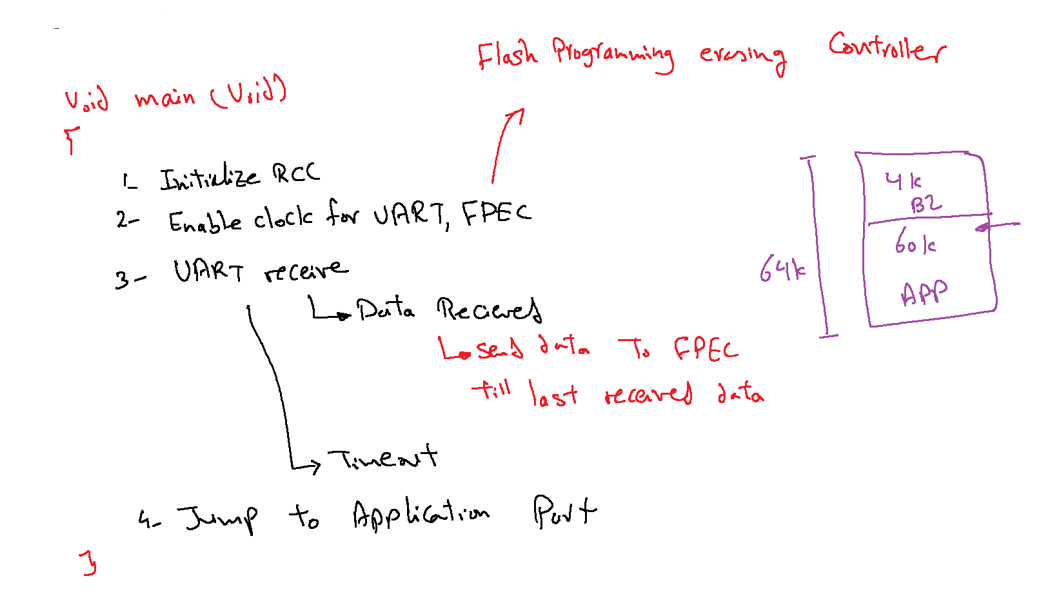 Flash Programming erasing Controller
Void main (Void)
{
1- Initialize RCC
2- Enable clock for UART, FPEC
3- UART receive
Data Recieved
send data To FPEC
till last received data
Timeout
4- Jump to Application Part
}
64k
4k
BL
60k
APP